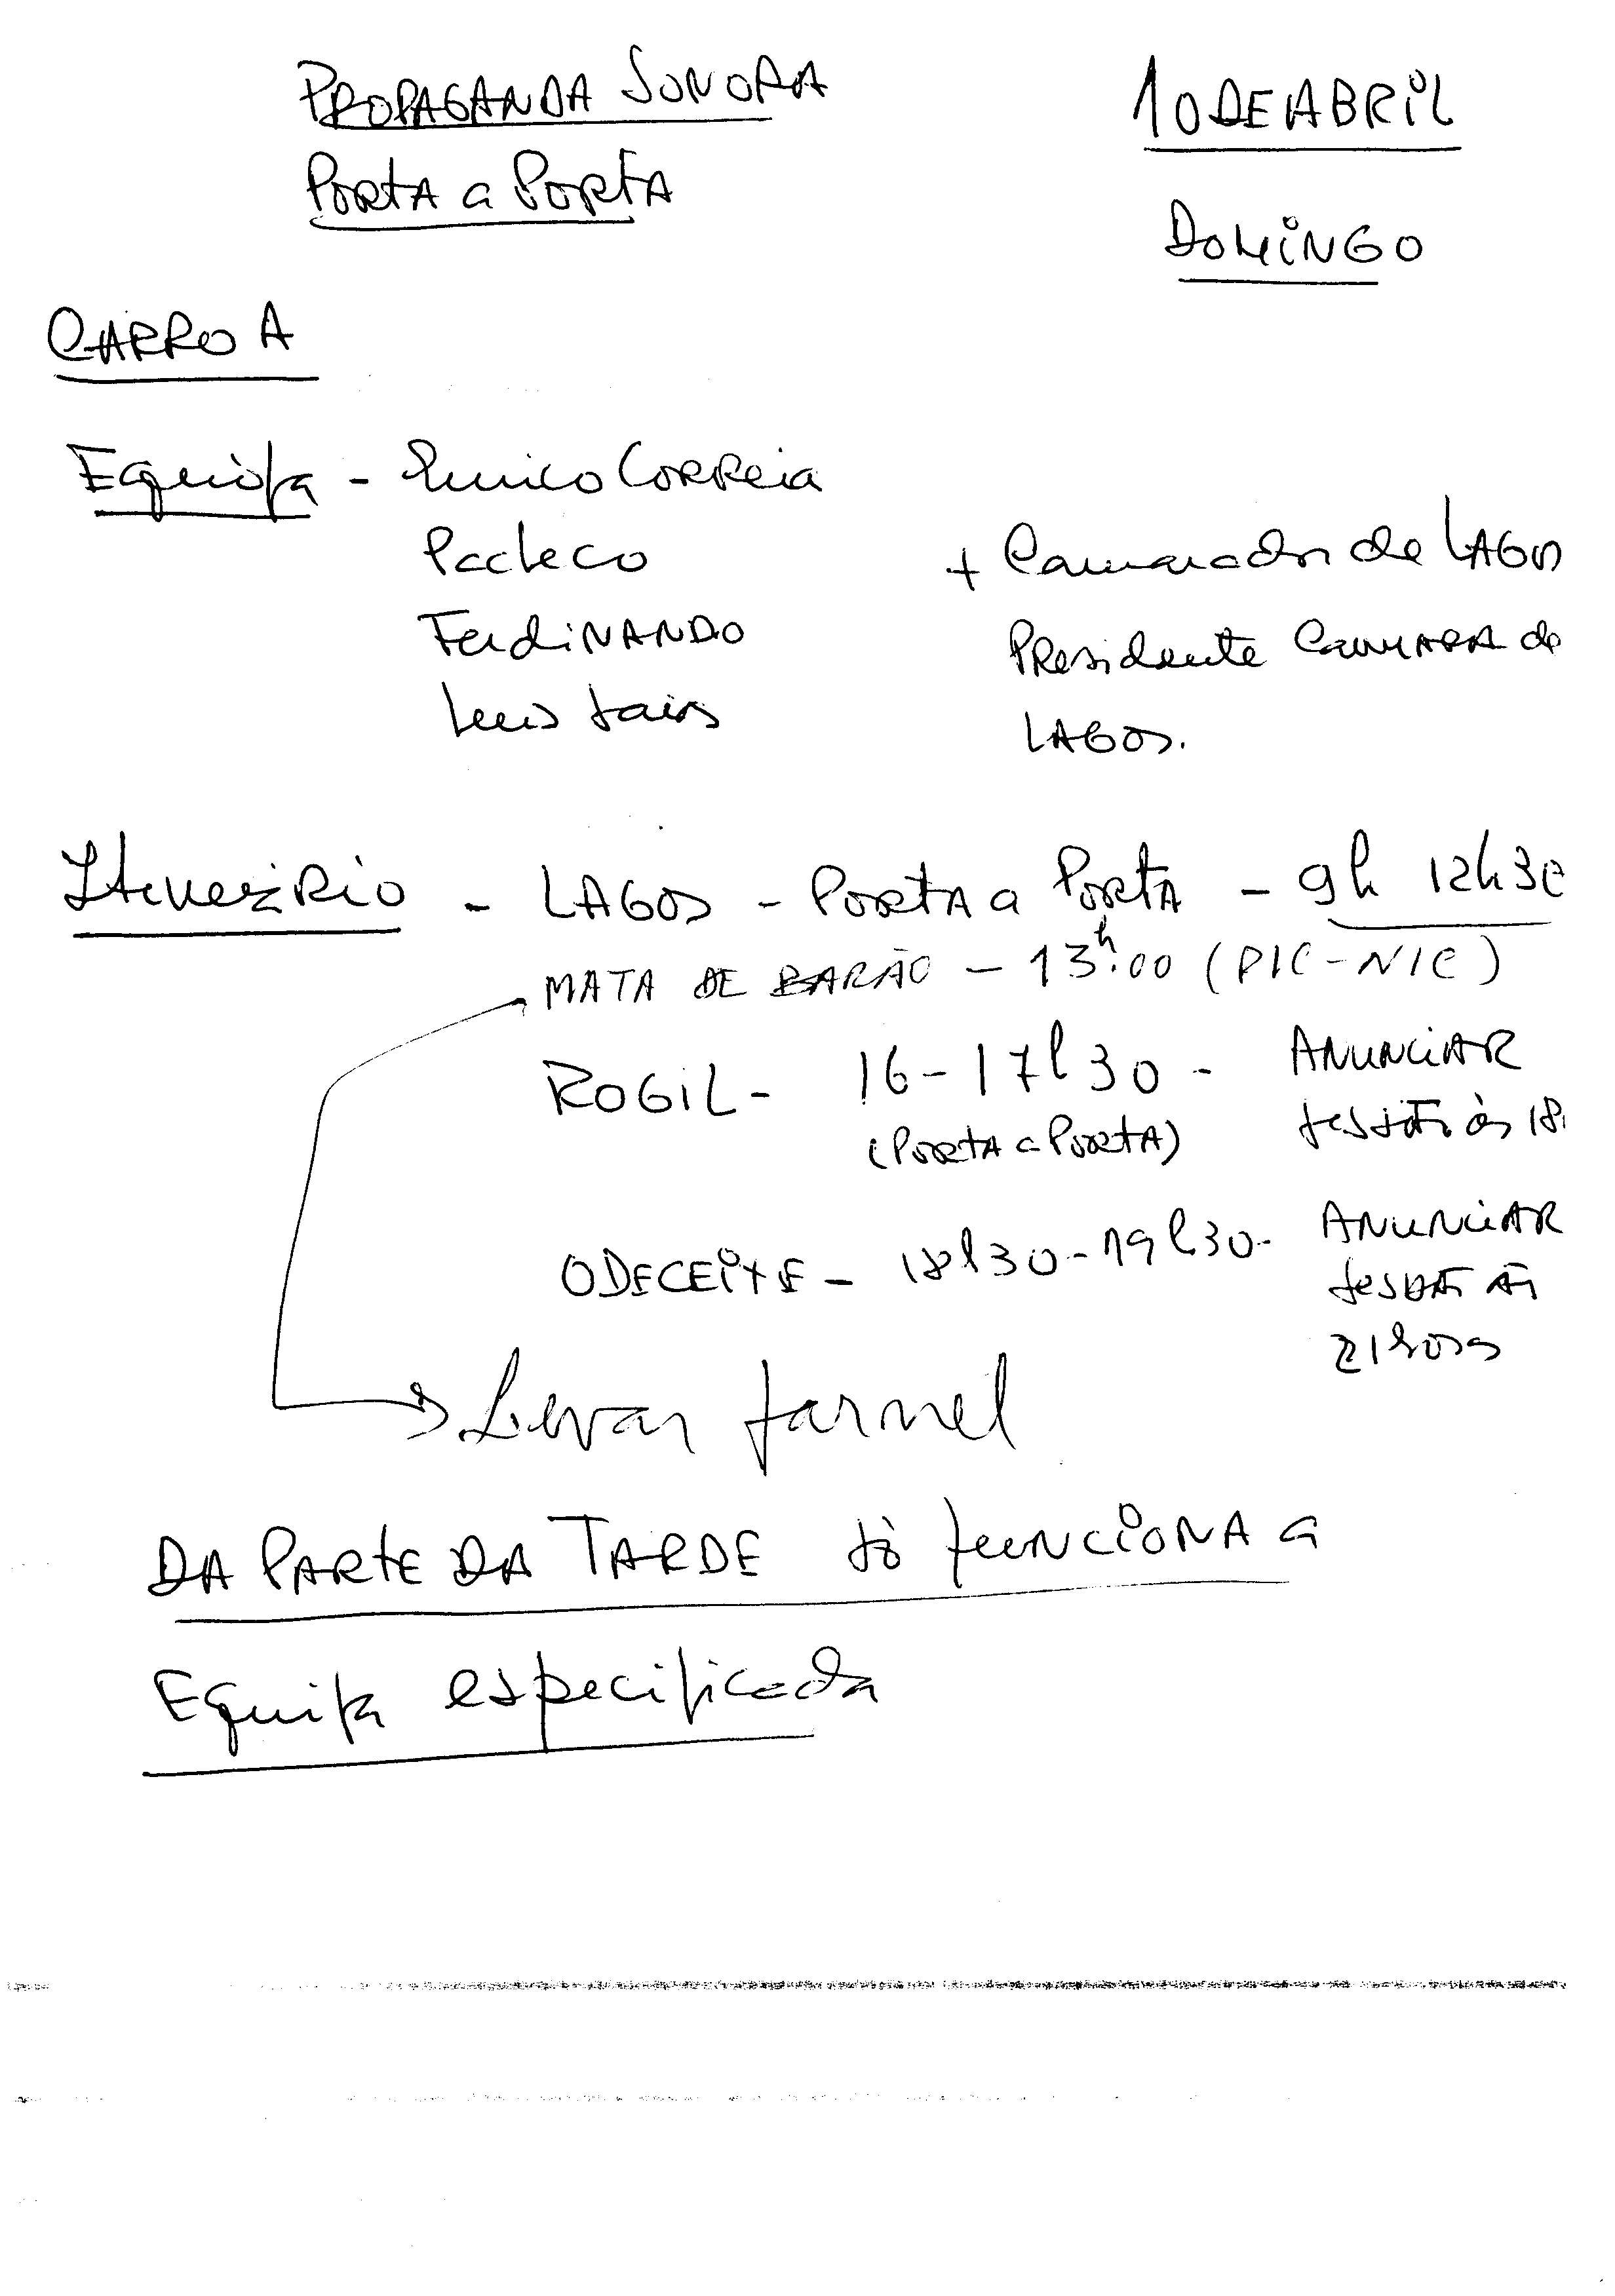 PROPAGANDA SONORA
PORTA a PORTA
10 DE ABRIL
DOMINGO
CARRO A
Equipa - Correia
Pacheco
FerdiNANDO
Luis
+ Camaradas de LAGOS
PResidente CamARA de
LAGOS.
ItinerÁRio - LAGOS - PORTA a PORTA - 9h 12h30
MATA DE BARÃO - 13h:00 (PIC-NIC)
ROGiL - 16-17h30 - ANUNCiAR
(PORTA a PORTA) sessão às 18
ODECEiXE - 18h30-19h30- ANUNCiAR
sessão às
21 horas
Levar farnel
DA PARTE DA TARDE só fuNCiONA a
Equipa especificada